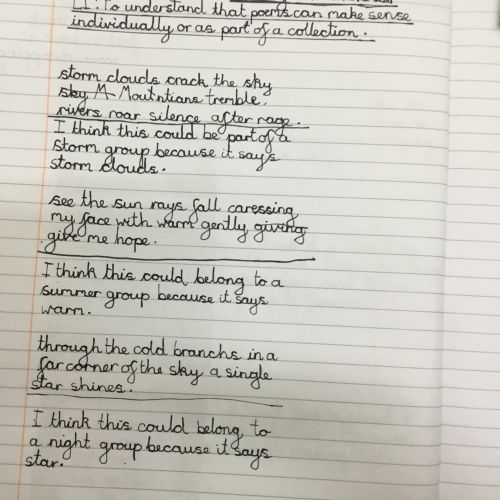 LI: To understand that poems can make sense
individually or as part of a collection.
storm clouds crack the sky
sky M Moutntians tremble.
rivers roar silence after rage.
I think this could be part of a
storm group because it says
storm clouds.
see the sun rays fall caressing
my face with warm gently giving
give me hope.
I think this could belong to a
summer group because it says
warm.
through the cold branchs in a
far corner of the sky a single
star shines.
I think this could belong to
a night group because it says
star.